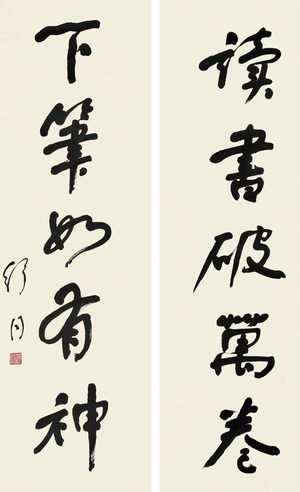 讀書破萬卷
下筆如有神
舒同